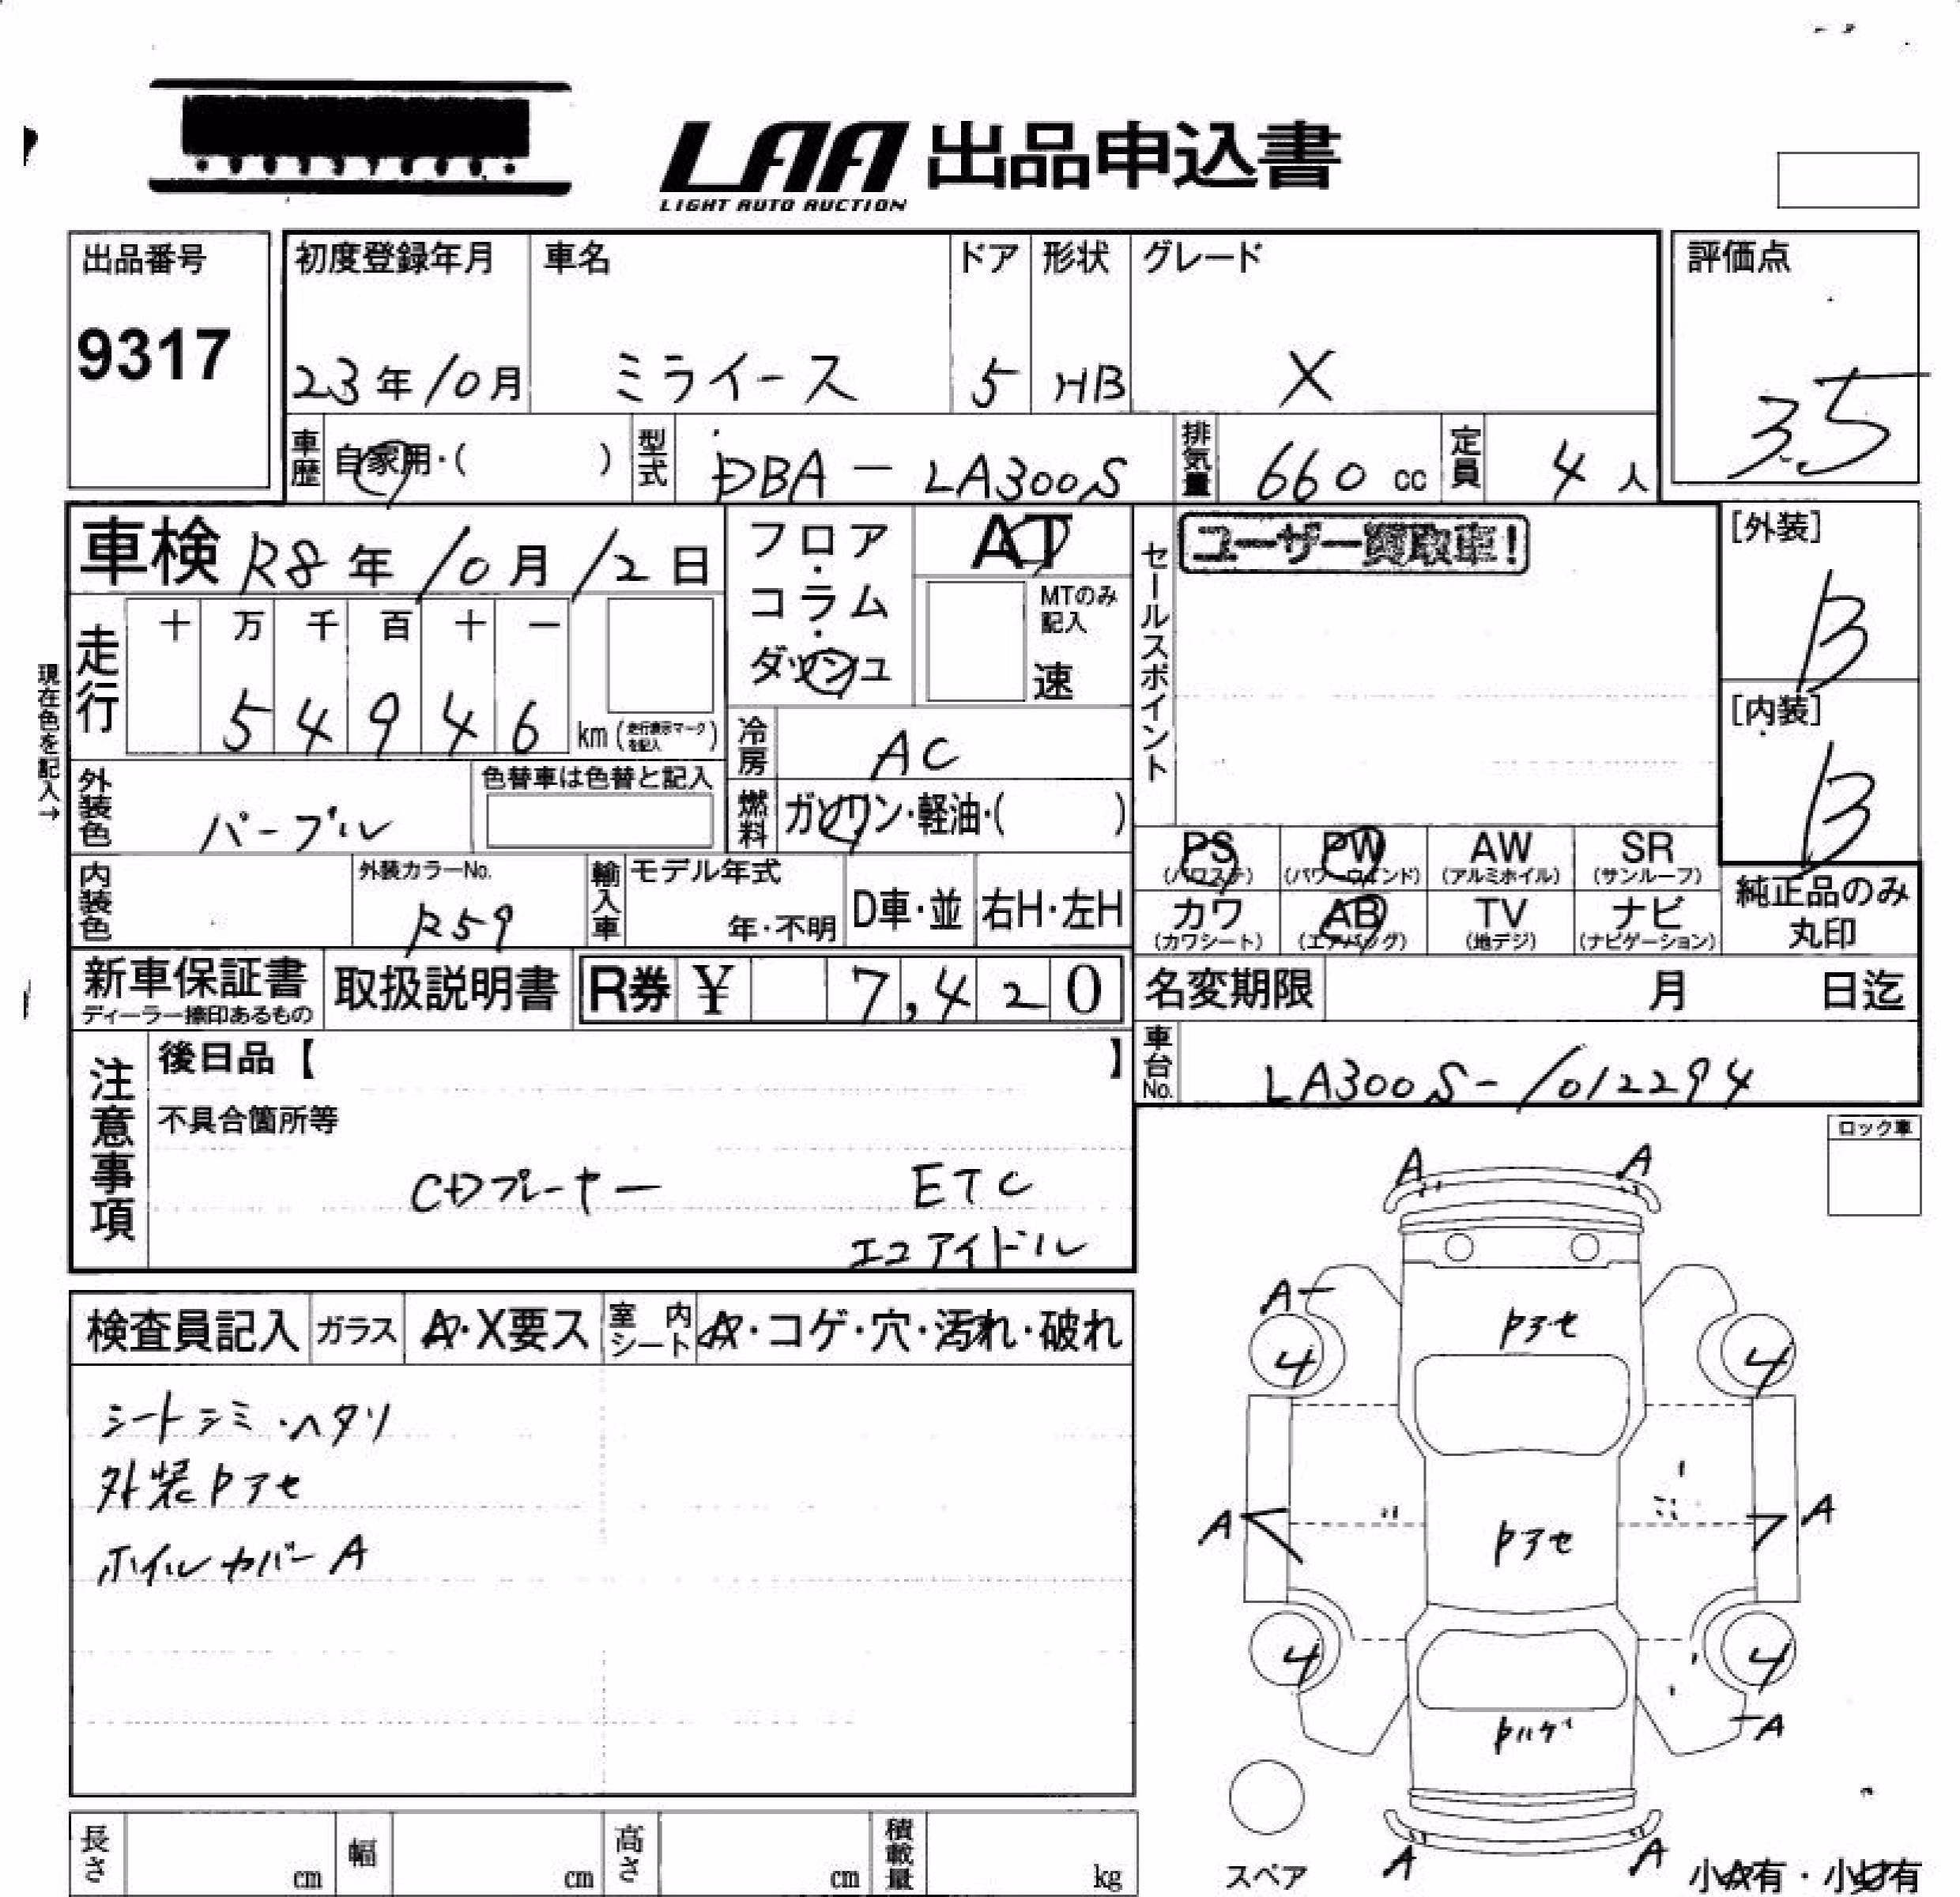 LAA 出品申込書
LIGHT AUTO AUCTION
出品番号
9317
初度登録年月
23年10月
車名
ミライース
ドア
5
形状
HB
グレード
X
評価点
3.5
車歴 自家用・( )
型式 DBA-LA300S
排気量 660 cc
定員 4 人
車検 R8年10月12日
フロア・コラム・ダッシュ
AT
MTのみ記入
速
セールスポイント
ユーザー買取車!
[外装]
B
[内装]
B
現在色を記入→
走行
十 万 千 百 十 一
5 4 9 4 6 km (走行表示マークを記入)
冷房 AC
燃料 ガソリン・軽油・( )
外装色 パープル
色替車は色替と記入
内装色
外装カラーNo.
R59
輸入車
モデル年式
年・不明
D車・並
右H・左H
PS (パワステ)
PW (パワーウインド)
AW (アルミホイル)
SR (サンルーフ)
カワ (カワシート)
AB (エアバッグ)
TV (地デジ)
ナビ (ナビゲーション)
純正品のみ丸印
新車保証書
ディーラー捺印あるもの
取扱説明書
R券 ¥ 7,420
名変期限 月 日迄
車台No. LA300S-1012294
注意事項
後日品【 】
不具合箇所等
CDプレーヤー ETC
エコアイドル
ロック車
検査員記入
ガラス A・X要ス
室内シート A・コゲ・穴・汚れ・破れ
シートシミ・ヘタリ
外装Pアセ
ホイルカバーA
A A
A
Pアセ
4 4
A A
Pアセ
4 4
A
Pハゲ
A A
スペア
小A有・小U有
長さ cm
幅 cm
高さ cm
積載量 kg